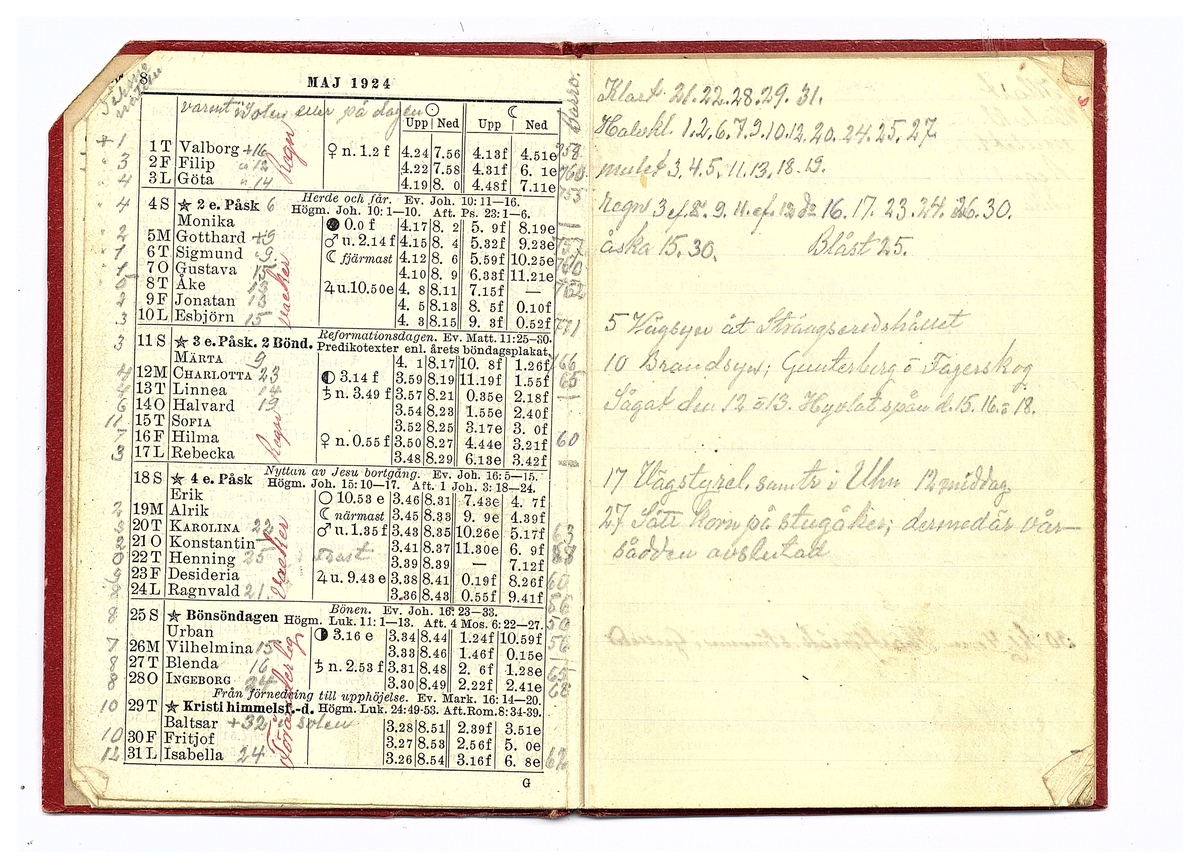 MAJ 1924
varmt i Solen eller på dagen ☉ ☾
Upp Ned Upp Ned
+ 1 1 T Valborg +16 ♀ n. 1.2 f 4.24 7.56 4.13f 4.51e 758
3 2 F Filip 12 4.22 7.58 4.31f 6. 1e 760
4 3 L Göta 14 4.19 8. 0 4.48f 7.11e 755
Regn
Herde och får. Ev. Joh. 10: 11—16.
4 4 S ★ 2 e. Påsk 6 Högm. Joh. 10: 1—10. Aft. Ps. 23: 1—6.
Monika 0.0 f 4.17 8. 2 5. 9f 8.19e
2 5M Gotthard +9 ♂ u. 2.14 f 4.15 8. 4 5.32f 9.23e 757
1 6 T Sigmund 9 ☾ fjärmast 4.12 8. 6 5.59f 10.25e 760
1 7O Gustava 15 4.10 8. 9 6.33f 11.21e
0 8T Åke 15 ♃ u. 10.50e 4. 8 8.11 7.15f — 762
2 9F Jonatan 13 4. 5 8.13 8. 5f 0.10f
3 10L Esbjörn 15 4. 3 8.15 9. 3f 0.52f 771
vacker
Reformationsdagen. Ev. Matt. 11: 25-30.
3 11 S ★ 3 e. Påsk. 2 Bönd. Predikotexter enl. årets böndagsplakat.
MÄRTA 9 4. 1 8.17 10. 8f 1.26f 66
4 12M CHARLOTTA 23 3.14 f 3.59 8.19 11.19f 1.55f 65
4 13T Linnea 14 ♄ n. 3.49 f 3.57 8.21 0.35e 2.18f
6 14O Halvard 19 3.54 8.23 1.55e 2.40f
11 15T SOFIA 3.52 8.25 3.17e 3. 0f
7 16F Hilma ♀ n. 0.55 f 3.50 8.27 4.44e 3.21f 60
3 17L Rebecka 3.48 8.29 6.13e 3.42f
Regn
Nyttan av Jesu bortgång. Ev. Joh. 16: 5—15.
18 S ★ 4 e. Påsk Högm. Joh. 15: 10—17. Aft. 1 Joh. 3: 18—24.
Erik 10.53 e 3.46 8.31 7.43e 4. 7f
2 19M Alrik ☾ närmast 3.45 8.33 9. 9e 4.39f
5 20T KAROLINA 22 ♂ u. 1.35 f 3.43 8.35 10.26e 5.17f 63
2 21O Konstantin 3.41 8.37 11.30e 6. 9f 58
0 22T Henning 25 3.39 8.39 — 7.12f
9 23F Desideria ♃ u. 9.43 e 3.38 8.41 0.19f 8.26f 60
24L Ragnvald 21. 3.36 8.43 0.55f 9.41f 56
Vacker
Bönen. Ev. Joh. 16: 23—33.
8 25 S ★ Bönsöndagen Högm. Luk. 11: 1—13. Aft. 4 Mos. 6: 22—27. 50
Urban 3.16 e 3.34 8.44 1.24f 10.59f
7 26M Vilhelmina 15 3.33 8.46 1.46f 0.15e 56
8 27T Blenda 16 ♄ n. 2.53 f 3.31 8.48 2. 6f 1.28e 65
8 28O INGEBORG 24 3.30 8.49 2.22f 2.41e 68
Från förnedring till upphöjelse. Ev. Mark. 16: 14—20.
10 29T ★ Kristi himmelsf.-d. Högm. Luk. 24: 49-53. Aft. Rom. 8: 34-39.
Baltsar +32 i solen 3.28 8.51 2.39f 3.51e
10 30F Fritjof 3.27 8.53 2.56f 5. 0e
12 31L Isabella 24 3.26 8.54 3.16f 6. 8e 62
G
Klart 21. 22. 28. 29. 31.
Halvkl. 1. 2. 6. 7. 9. 10. 12. 20. 24. 25. 27.
mulet 3. 4. 5. 11. 13. 18. 19.
regn 3 ef. 8. 9. 11. ef. 12 do 16. 17. 23. 24. 26. 30.
åska 15. 30. Blåst 25.
5 Vägsyn åt Strängseredshållet
10 Brandsyn; Gunterberg o Fagerskog
Sågat den 12 o 13. Hyvlat spån d. 15. 16. o 18.
17 Vägstyrel. samtr i Uhn 12 middag
27 Sått korn på stugåker; dermed är vår-
sådden avslutad